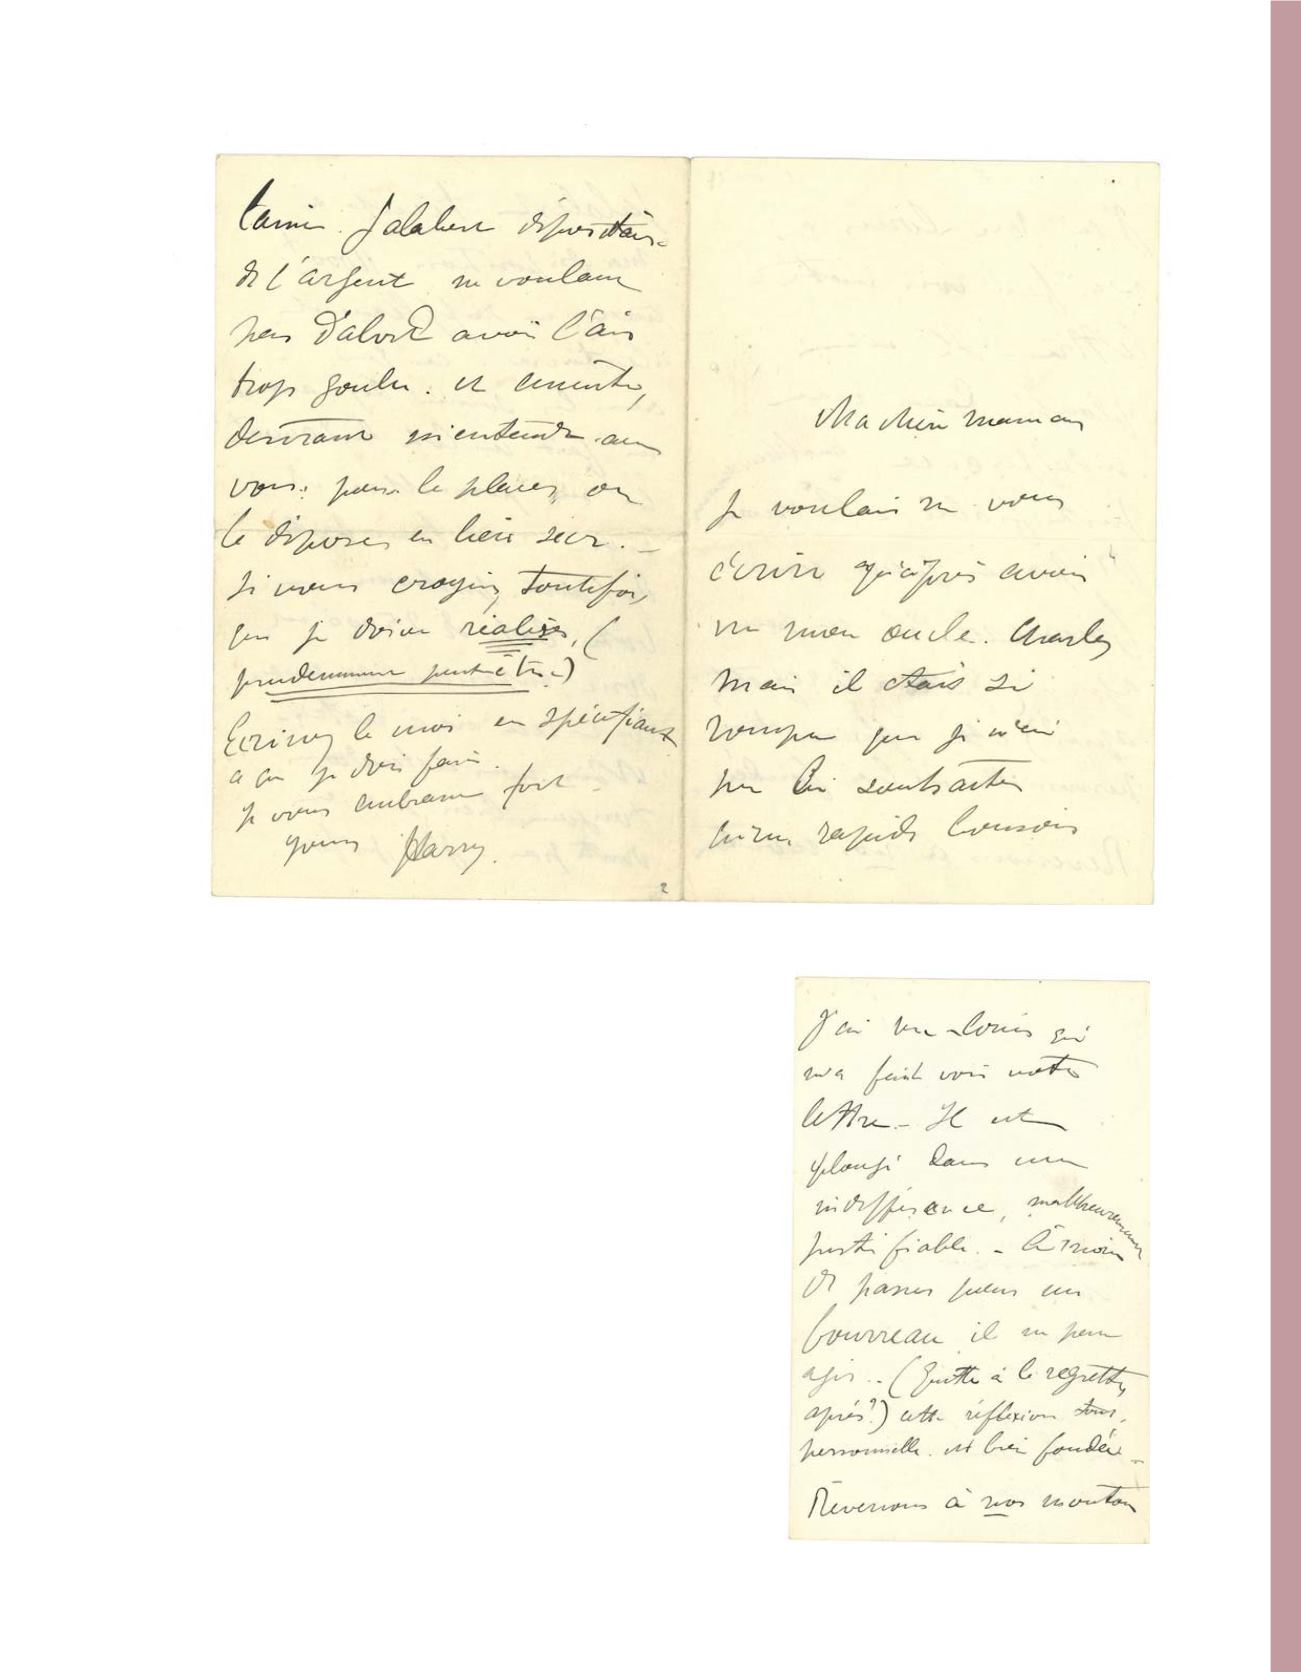 Ma chère maman
Je voulais ne vous
écrire qu'après avoir
vu mon oncle Charles
mais il était si
rompu que je n'ai
pu lui soutraiter
qu'un rapide bonsoir
J'ai vu Louis qui
m'a fait voir votre
lettre. - Il est
plongé dans une
indifférence, malheureusement
justifiable. - À moins
de passer pour un
bourreau il ne peut
agir .. (Quitte à le regretter
après?) cette réflexion toute
personnelle est bien fondée -
Revenons à nos moutons
Jalabert dépositaire
de l'argent ne voulant
pas d'abord avoir l'air
trop goulu. et ensuite,
désirant s'entendre avec
vous: pour le placer, ou
le déposer en lieu sûr. -
Si vous croyiez, toutefois,
que je doive réaliser, (
prudemment peut-être)
Ecrivez le moi en spécifiant
ce que je dois faire.
Je vous embrasse fort -
yours Harry.
2